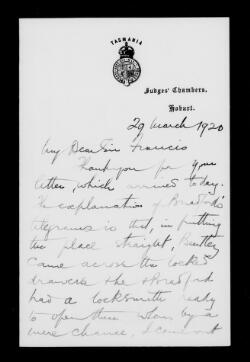 TASMANIA
Judges' Chambers,
Hobart.
29 March 1920
My Dear Sir Francis
Thank you for your
letter, which arrived today.
The explanation of Bradford's
telegrams is that, in putting
the place straight, Bentley
came across the locked
drawers & Bradford
had a locksmith ready
to open them when by a
mere chance, I could not